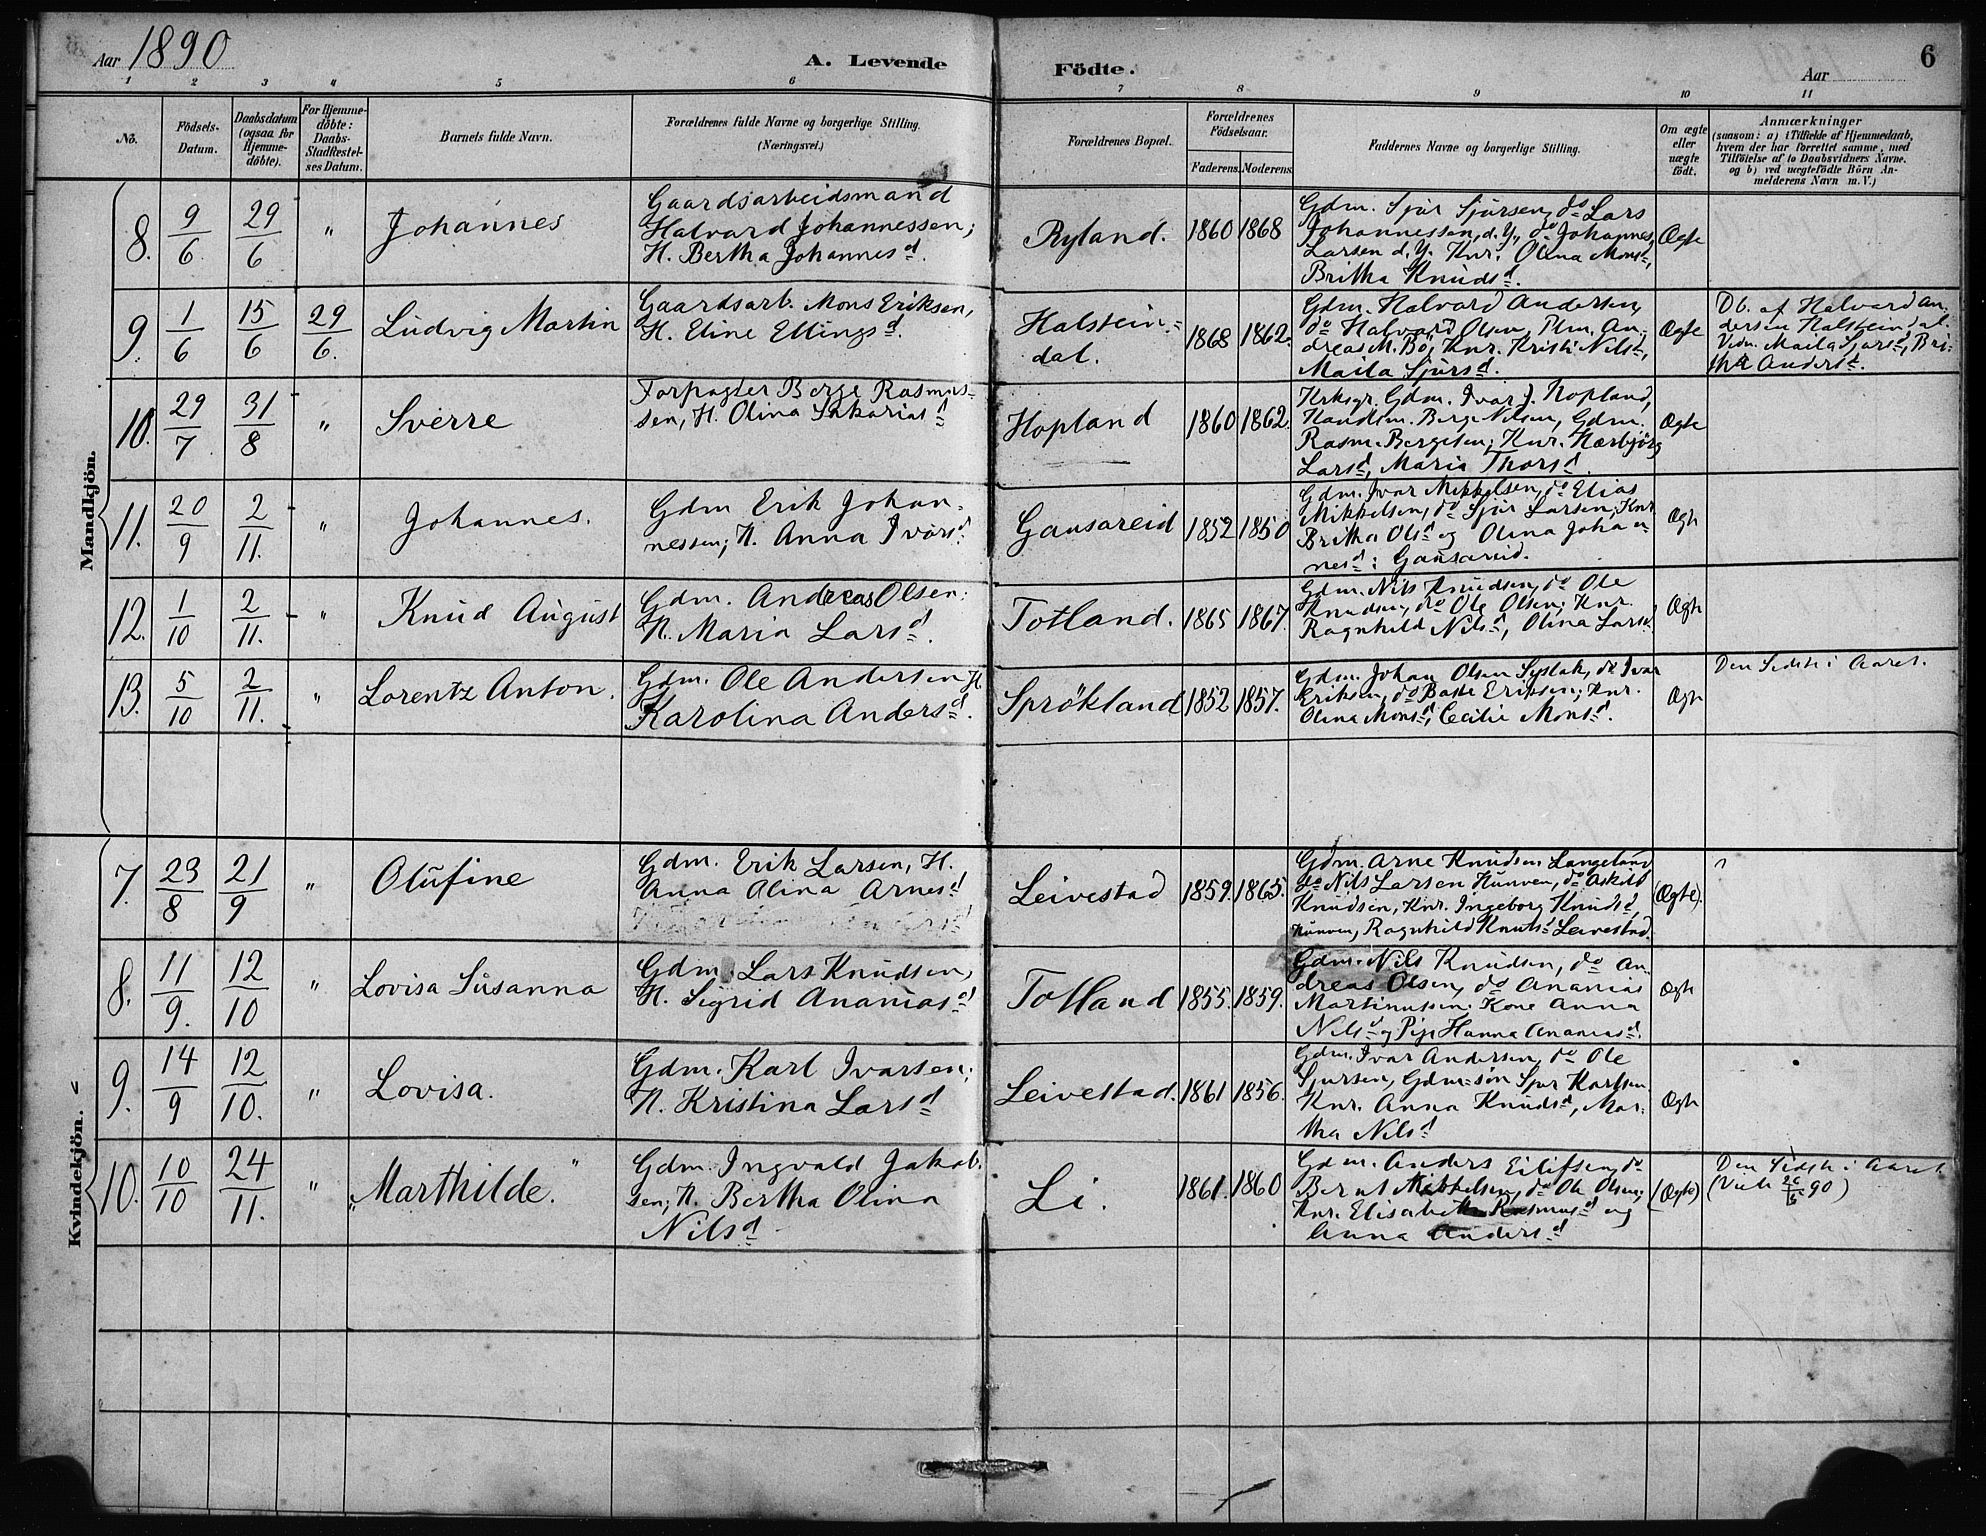 Aar 1890
A. Levende Födte.
Aar
6
1 2 3 4 5 6 7 8 9 10 11
No.
Födsels-Datum.
Daabsdatum (ogsaa for Hjemme-döbte).
For Hjemme-döbte: Daabs-Stadfæstel-ses Datum.
Barnets fulde Navn.
Forældrenes fulde Navne og borgerlige Stilling.
(Næringsvei.)
Forældrenes Bopæl.
Forældrenes Födselsaar.
Faderens. Moderens.
Faddernes Navne og borgerlige Stilling.
Om ægte eller uægte födt.
Anmærkninger
(saasom: a) i Tilfælde af Hjemmedaab,
hvem der har forrettet samme, med
Tilföielse af to Daabsvidners Navne.
og b) ved uægtefödte Börn An-
melderens Navn m.V.)
Mandkjön.
8. 9/6 29/6 " Johannes
Gaardsarbeidsmand
Halvard Johannessen;
H. Bertha Johannesd.
Ryland. 1860 1868
Gdm. Sjur Sjursen, do Lars
Johannessen, d. Y., do Johannes
Larsen d. Y. Knr. Olina Monsd,
Britha Knudsd.
Ægte
9. 1/6 15/6 29/6. Ludvig Martin
Gaardsarb. Mons Eriksen,
H. Eline Ellingsd.
Halstein=
dal.
1868 1862.
Gdm. Halvard Andersen,
do Halvard Olsen, Plm. An-
dreas M. Bö; Knr. Kristi Nilsd,
Maila Sjursd.
Ægte
Db. af Halvard An-
dersen Halsteindal.
Vidn. Maila Sjursd, Bri-
tha Andersd.
10. 29/7 31/8 " Sverre
Forpagter Berge Rasmus-
sen, H. Olina Sakariasd
Hopland 1860 1862.
Krksgr. Gdm. Ivar J. Hopland,
Handlm. Berge Nilsen, Gdm.
Rasm. Bergesen; Knr. Hærbjörg
Larsd, Maria Thorsd.
Ægte
11. 20/9 2/11. " Johannes.
Gdm Erik Johan-
nessen; H. Anna Ivarsd.
Gausareid 1852 1850
Gdm. Ivar Mikkelsen, do Elias
Mikkelsen, do Sjur Larsen; Knr
Britha Olsd og Olina Johan
nesd: Gausareid.
Ægte
12. 1/10 2/11. " Knud August
Gdm. Andreas Olsen;
H. Maria Larsd.
Totland. 1865 1867.
Gdm. Nils Knudsen, do Ole
Knudsen, do Ole Olsen; Knr.
Ragnhild Nilsd, Olina Larsd.
Ægte
13. 5/10 2/11. " Lorentz Anton.
Gdm. Ole Andersen H.
Karolina Andersd.
Sprökland 1852 1857.
Gdm. Johan Olsen Systak, do Ivar
Eriksen, do Baste Eriksen; Knr.
Olina Monsd, Cecilie Monsd.
Ægte
Den Sidste i Aaret.
Kvindekjön.
7. 23/8 21/9 " Olufine
Gdm. Erik Larsen, H.
Anna Olina Arnesd
Leivestad 1859. 1865.
Gdm. Arne Knudsen Langeland
do Nils Larsen Hunven, do Askild
Knudsen, Knr. Ingeborg Knudsd,
Hunven, Ragnhild Knutsd Leivestad.
(Ægte).
8. 11/9. 12/10 " Lovisa Susanna
Gdm. Lars Knudsen,
H. Sigrid Ananiasd
Totland 1855. 1859.
Gdm. Nils Knudsen, do An-
dreas Olsen, do Ananias
Martinussen; Kone Anna
Nilsd og Pige Hanna Ananiasd.
Ægte
9. 14/9 12/10. " Lovisa.
Gdm. Karl Ivarsen;
H. Kristina Larsd
Leivestad. 1861 1856.
Gdm. Ivar Andersen, do Ole
Sjursen, Gdm-sön Sjur Karlsen.
Knr. Anna Knudsd, Mar-
tha Nilsd
Ægte
10. 10/10 24/11. " Marthilde.
Gdm. Ingvald Jakob-
sen; H. Bertha Olina
Nilsd
Li. 1861. 1860
Gdm. Anders Eilifsen, do
Bernt Mikkelsen, do Ole Olsen;
Knr. Elisabeth Rasmusd og
Anna Andersd
(Ægte)
Den Sidste i Aaret